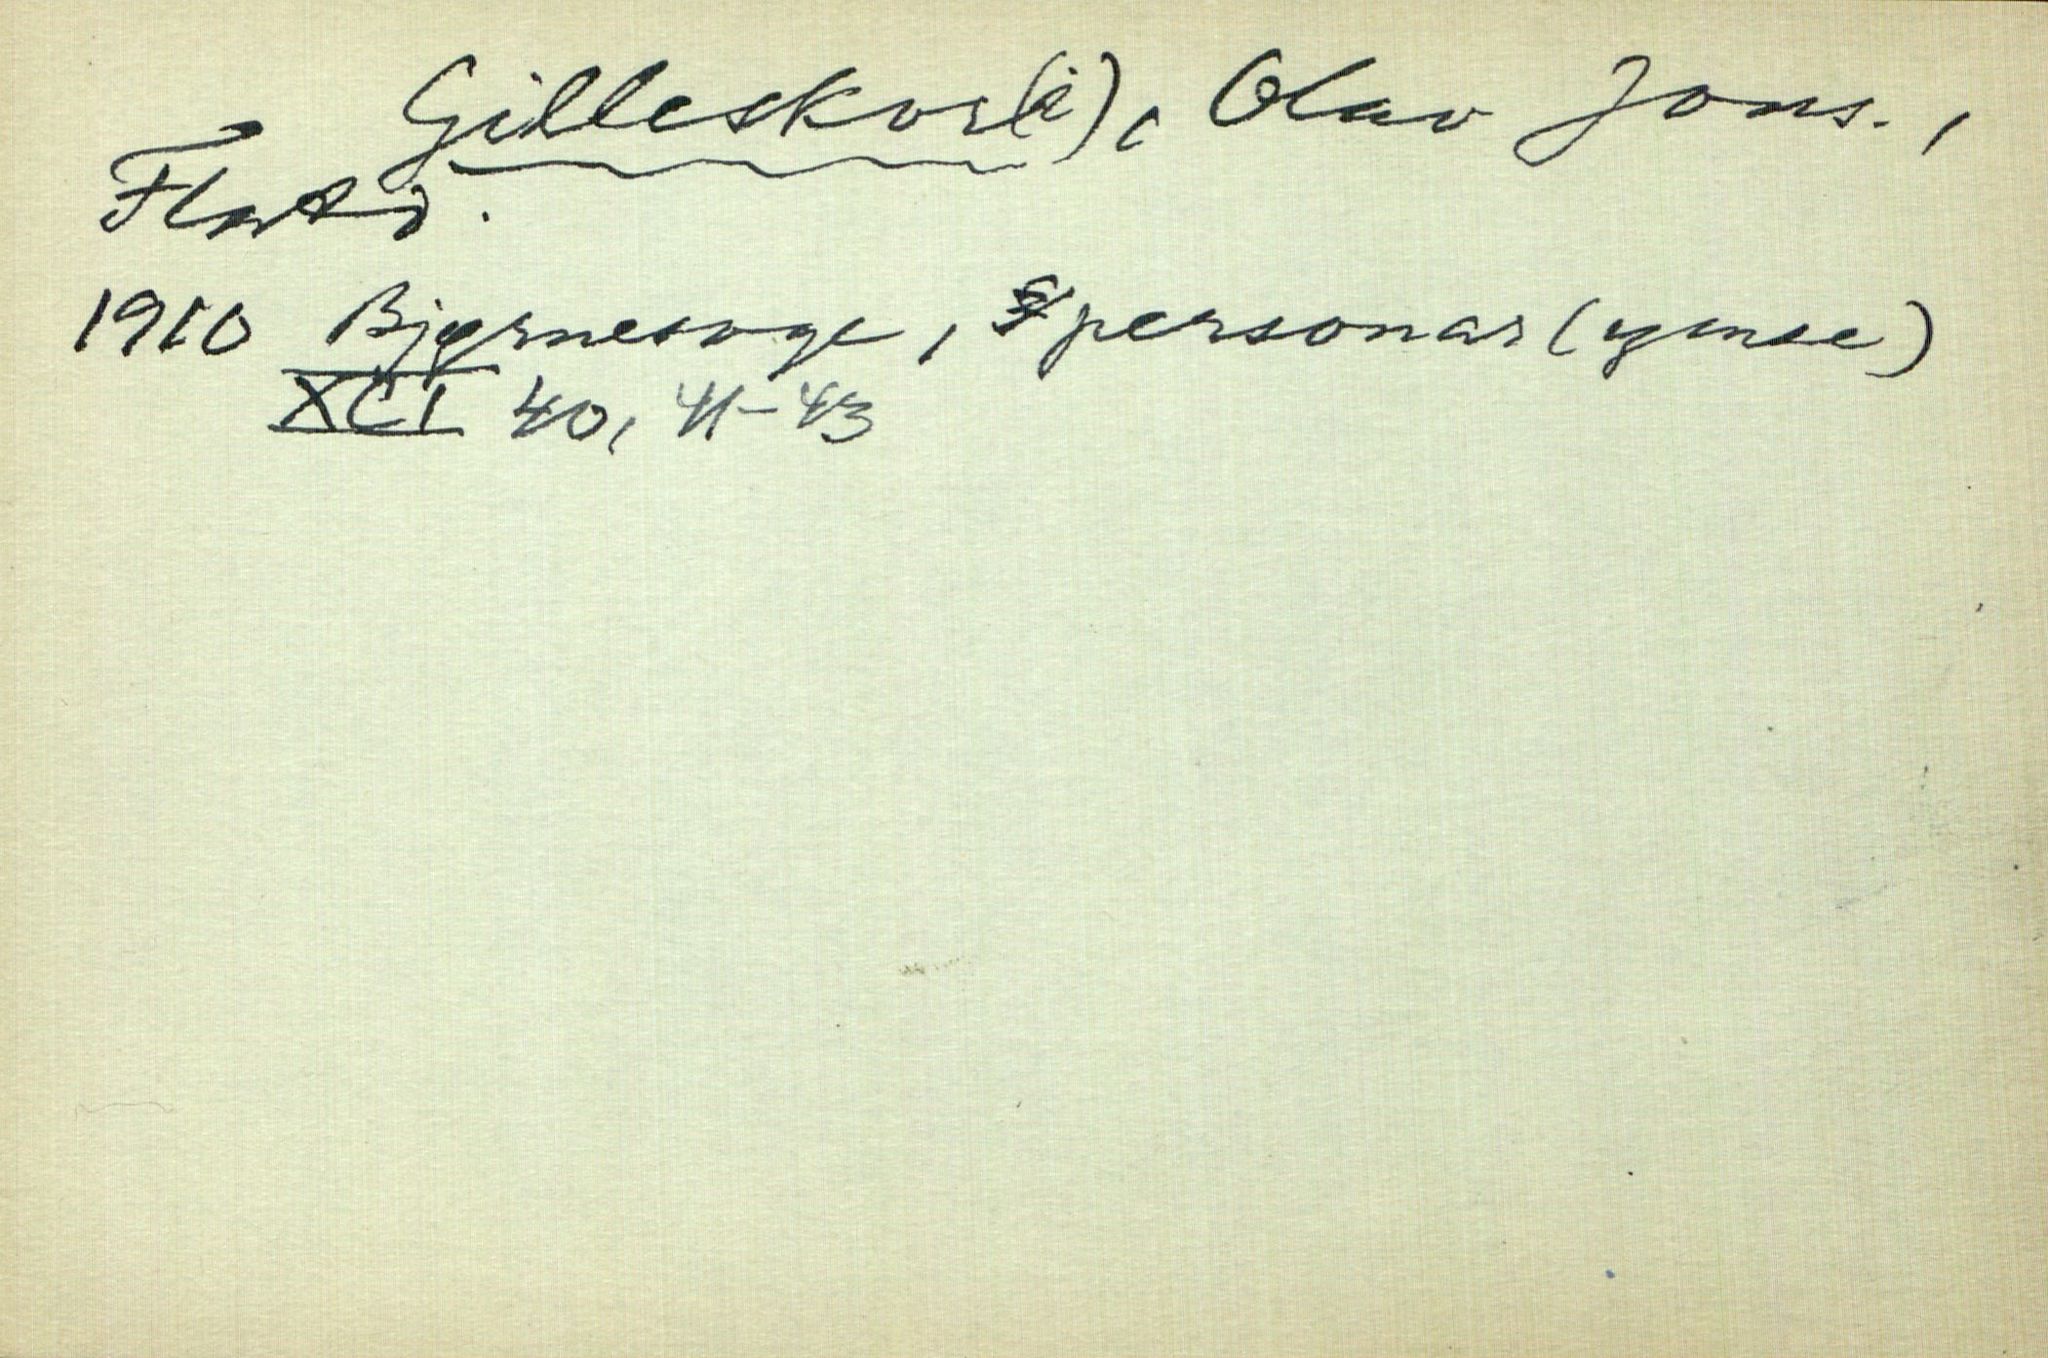 Gilleskor(i), Olav Jons.,
Flatd.
1910 Bjørnesoge, personar (ymse)
XCI 40, 41-43